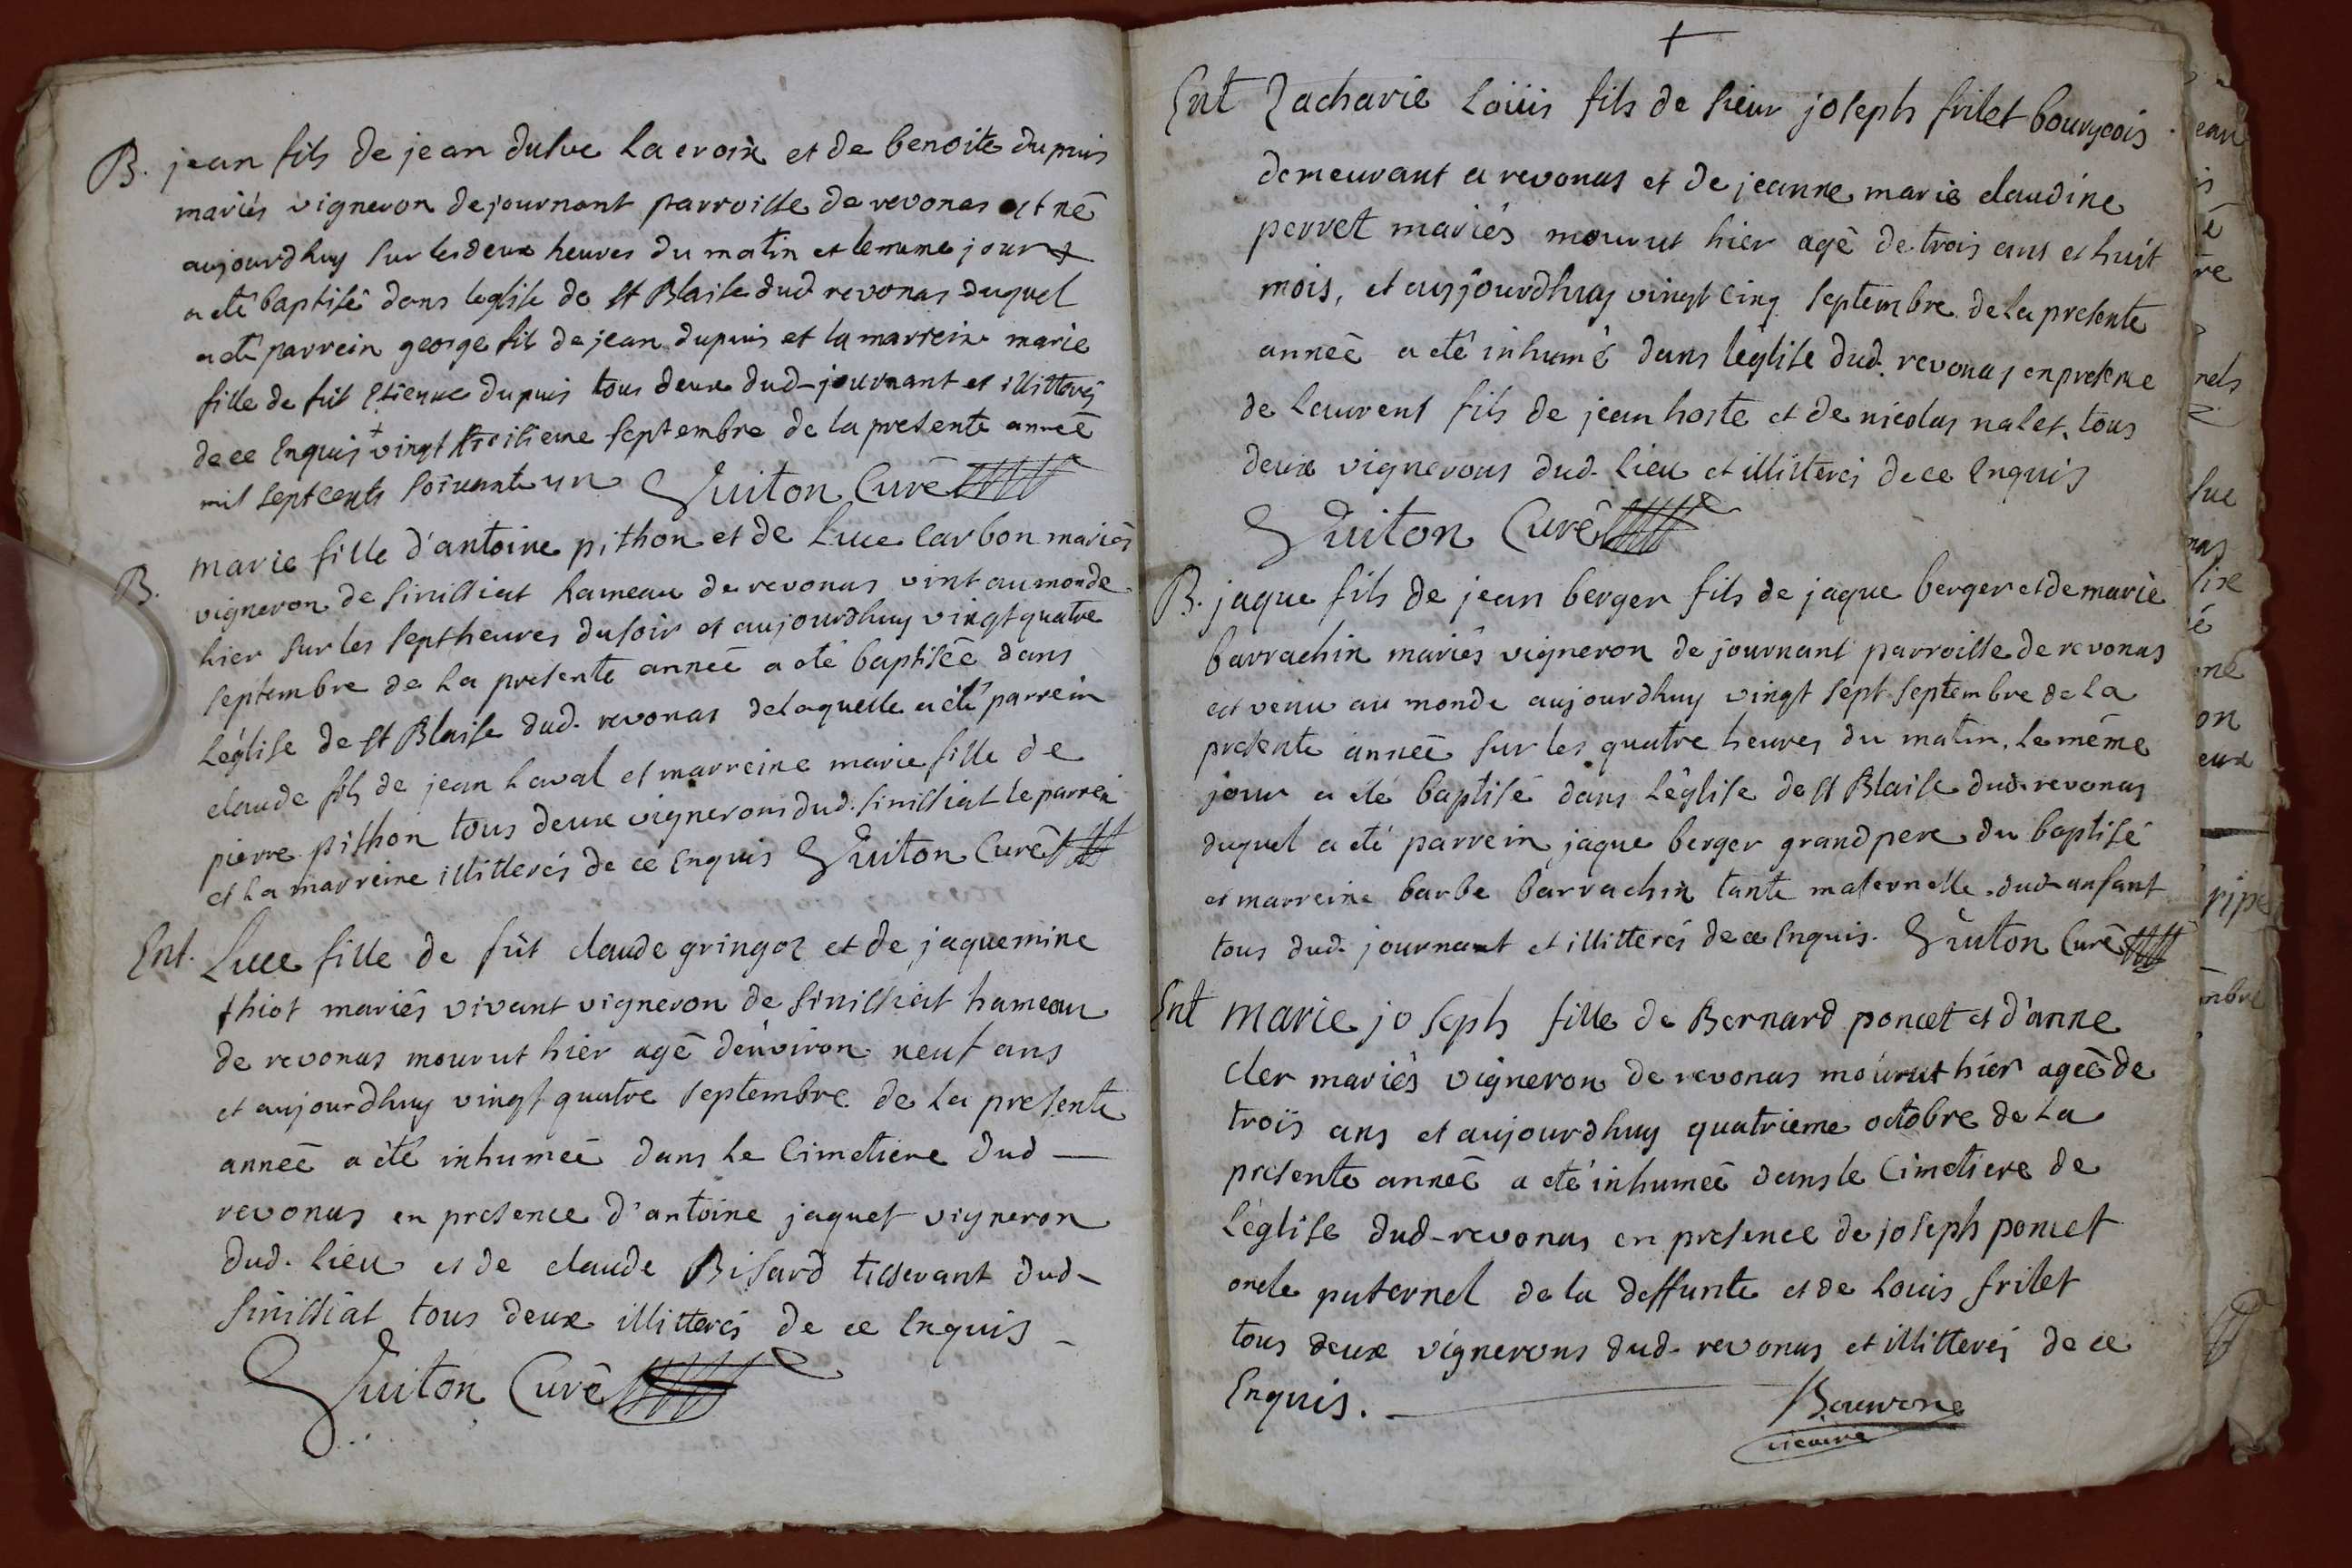 B. jean fils de jean dulue Lacroix et de benoite dupuis
mariés vigneron de journant parroisse de revonas est né
aujourdhuy sur les deux heures du matin et le meme jour +
a eté baptisé dans leglise de st Blaise dud revonas duquel
a eté parrein george fils de jean dupuis et la marreine marie
fille de fut etienne dupuis tous deux dud-journant et illitterés
de ce Enquis + vingt troisieme septembre de la presente année
mil septcents soixante un Guiton Curé
B. marie fille d'antoine pithon et de Luce Carbon mariés
vigneron de sinissiat hameau de revonas vint au monde
hier sur les sept heures du soir et aujourdhuy vingt quatre
septembre de La presente année a eté baptisée dans
L'église de st Blaise dud. revonas de laquelle a eté parrein
claude fils de jean Laval et marreine marie fille de
pierre pithon tous deux vignerons dud. sinissiat le parrein
et La marreine illitterés de ce Enquis Guiton Curé
Ent. Luce fille de fût claude gringoz et de jaquemine
thiot mariés vivant vigneron de sinissiat hameau
de revonas mourut hier agé d'environ neuf ans
et aujourdhuy vingt quatre septembre de La presente
année a été inhumée dans Le Cimetiere dud —
revonas en presence d'antoine jaquet vigneron
dud. Lieu et de claude Bisard tisserant dud-
sinissiat tous deux illitterés de ce Enquis -
Guiton Curé
+
Ent Zacharie Loüis fils de sieur joseph frilet bourgeois
demeurant a revonas et de jeanne marie claudine
perret mariés mourut hier agé de trois ans et huit
mois, et aujourdhuy vingt cinq septembre de La presente
année a eté inhumé dans leglise dud. revonas en presence
de Laurent fils de jean hoste et de nicolas nalet, tous
deux vignerons dud. Lieu et illitterés de ce Enquis
Guiton Curé
B. jaque fils de jean berger fils de jaque berger et de marie
barrachin mariés vigneron de journant parroisse de revonas
est venu au monde aujourdhuy vingt sept septembre de La
presente année sur les quatre heures du matin, Le même
jour a eté baptisé dans L'église de st Blaise dud. revonas
duquel a eté parrein jaque berger grand pere du baptisé
et marreine barbe barrachin tante maternelle dud-anfant
tous dud. journant et illitterés de ce Enquis. Guiton Curé
Ent marie joseph fille de Bernard poncet et d'anne
cler mariés vigneron de revonas mourut hier agée de
trois ans et aujourdhuy quatrieme octobre de La
presente année a eté inhumée dans le Cimetiere de
L'église dud-revonas en presence de joseph poncet
oncle paternel de la deffunte et de Louis frilet
tous deux vignerons dud-revonas et illitterés de ce
Enquis. —
vicaire